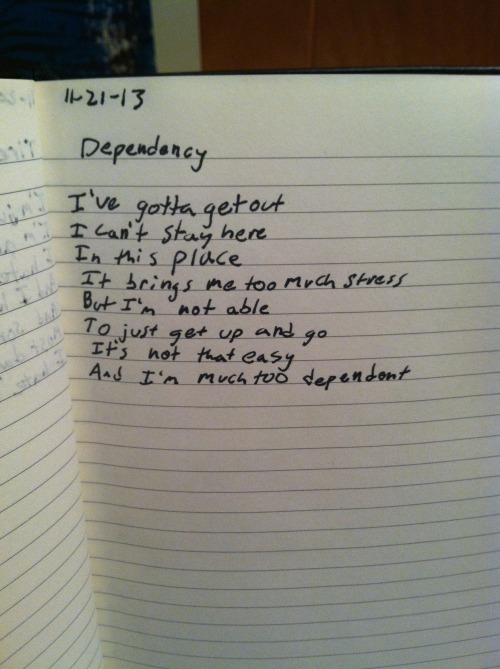 11-21-13
Dependency
I've gotta get out
I can't stay here
In this place
It brings me too much stress
But I'm not able
To just get up and go
It's not that easy
And I'm much too dependent